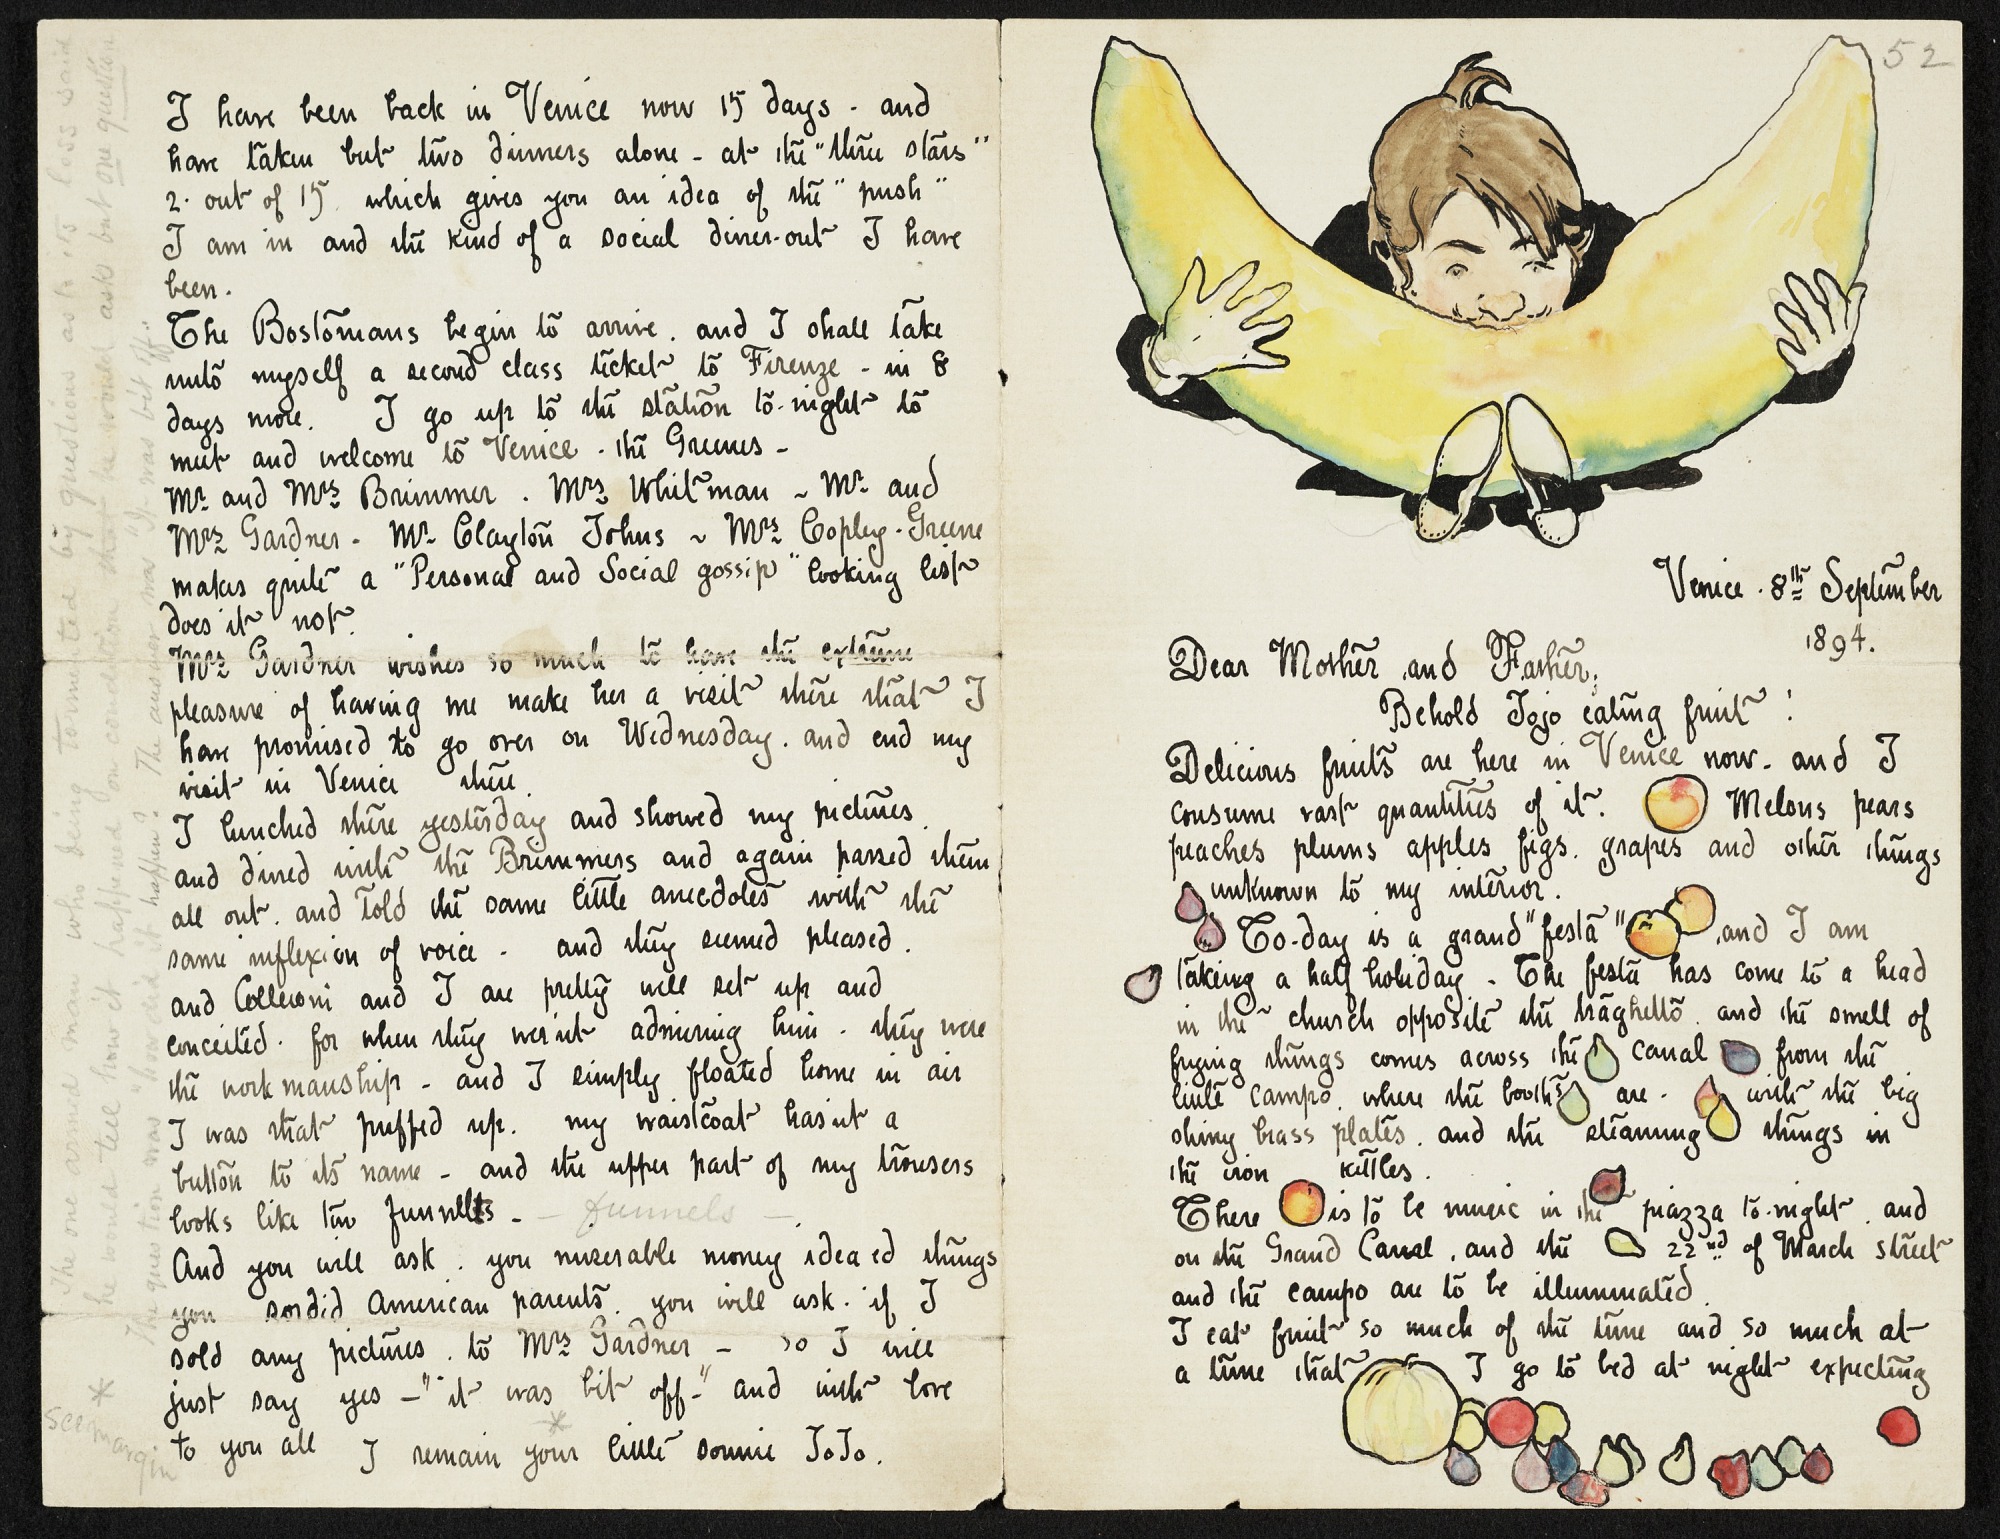 52
Venice . 8th September
1894.
Dear Mother and Father,
Behold Jojo eating fruit !
Delicious fruits are here in Venice now - and I
consume vast quantities of it. Melons pears
peaches plums apples figs. grapes and other things
unknown to my interior.
To-day is a grand "festa" , and I am
taking a half holiday - The festa has come to a head
in the church opposite the traghetto . and the smell of
frying things comes across the canal from the
little campo . where the booths are - with the big
shiny brass plates . and the steaming things in
the iron kettles .
There is to be music in the piazza to-night . and
on the Grand Canal , and the 22nd of March street
and the campo are to be illuminated .
I eat fruit so much of the time and so much at
a time that I go to bed at night expecting
I have been back in Venice now 15 days - and
have taken but two dinners alone - at the "three stars"
2. out of 15 which gives you an idea of the "push"
I am in and the kind of a social diner-out I have
been .
The Bostonians begin to arrive . and I shall take
unto myself a second class ticket to Firenze - in 8
days more. I go up to the station to-night to
meet and welcome to Venice - the Greenes -
Mr and Mrs Brimmer . Mrs Whitman ~ Mr and
Mrs Gardner - Mr Clayton Johns ~ Mrs Copley-Greene
makes quite a "Personal and Social gossip" looking list
does it not .
Mrs Gardner wishes so much to have the extreme
pleasure of having me make her a visit there that I
have promised to go over on Wednesday . and end my
visit in Venice there .
I lunched there yesterday and showed my pictures .
and dined with the Brimmers and again passed them
all out . and told the same little anecdotes with the
same inflexion of voice - and they seemed pleased .
and Colleoni and I are pretty well set up and
conceited . for when they wer'nt admiring him - they were
the workmanship - and I simply floated home in air
I was that puffed up . my waistcoat has'nt a
button to its name - and the upper part of my trousers
looks like two funnells - - funnels -
And you will ask . you miserable money idea ed things
you sordid American parents . you will ask . if I
sold any pictures . to Mrs Gardner - so I will
just say yes - "it was bit off -" and with love
*
to you all I remain your little sonnie JoJo .
* See margin
The one armed man who being tormented by questions as to its loss said
he would tell how it happened on condition that he would ask but one question
The question was "how did it happen? The answer was "It was bit off".